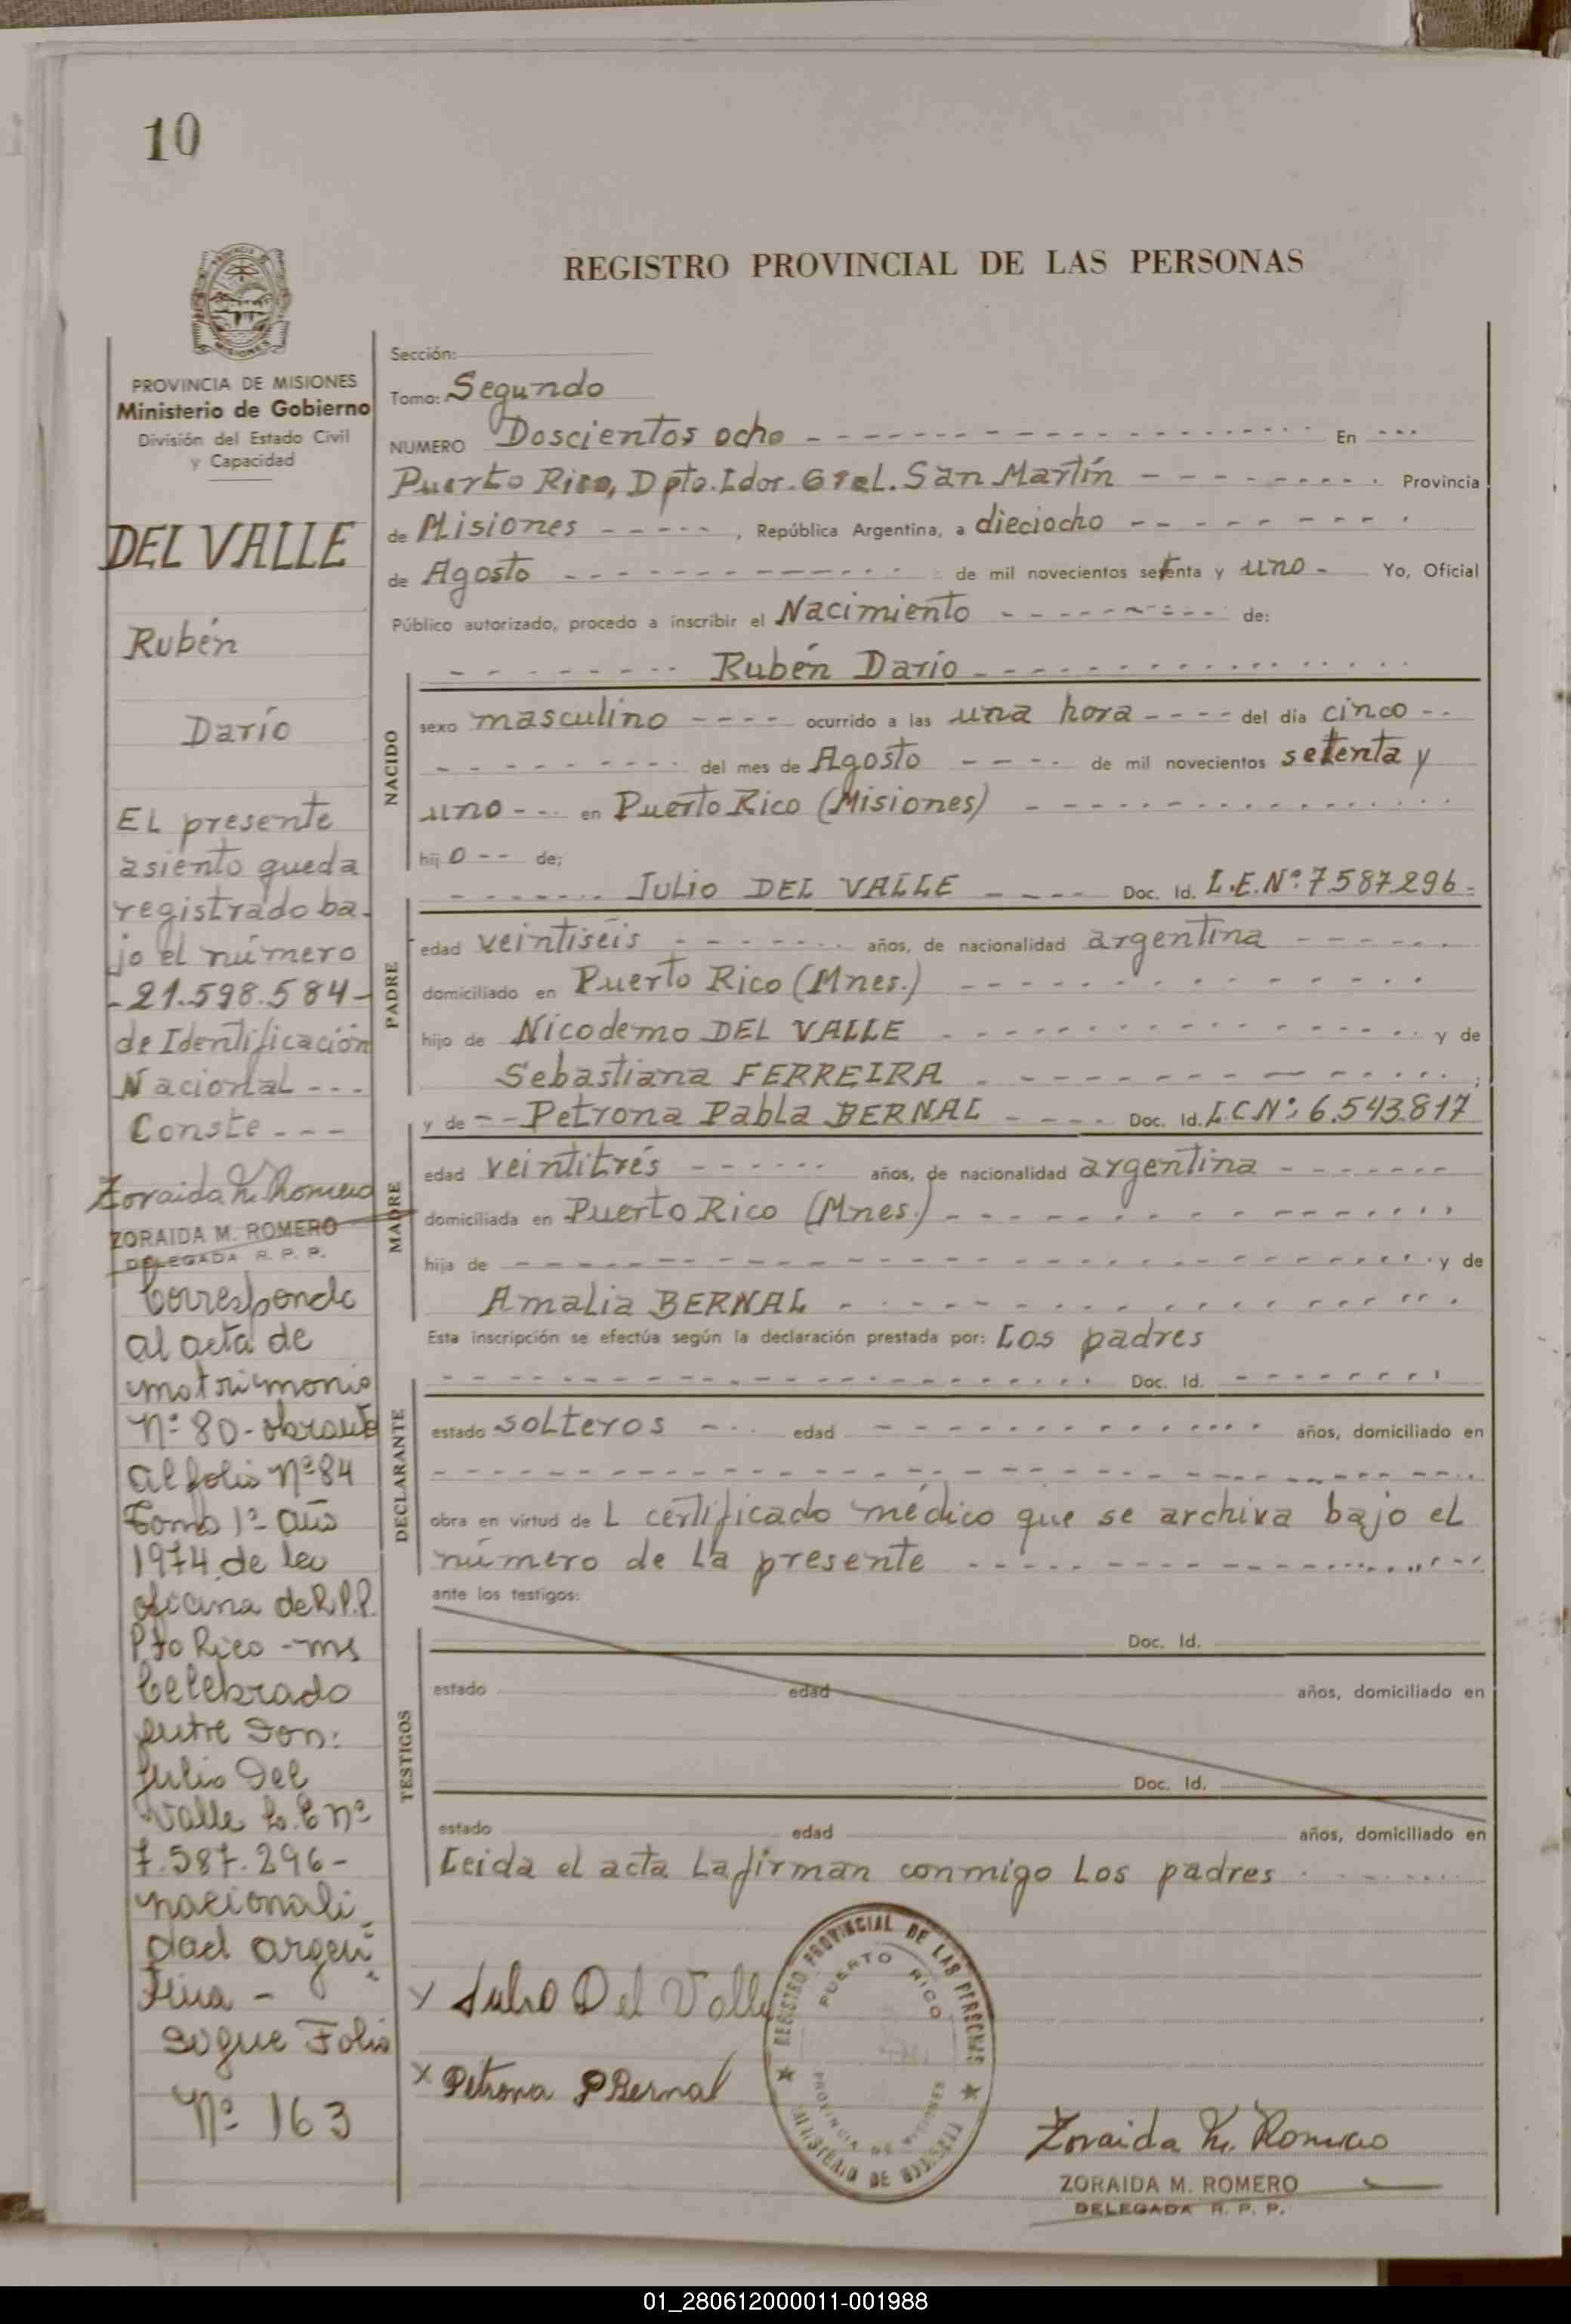 10
REGISTRO PROVINCIAL DE LAS PERSONAS
PROVINCIA DE MISIONES
Ministerio de Gobierno
División del Estado Civil
y Capacidad
DEL VALLE
Rubén
Darío
EL presente
asiento queda
registrado ba-
jo el número
-21.598.584-
de Identificación
Nacional ---
Conste ---
Zoraida M. Romero
ZORAIDA M. ROMERO
DELEGADA R. P. P.
Corresponde
al acta de
matrimonio
Nº 80 - obrante
al folio Nº 84
Tomo 1º año
1974 de la
oficina de R.P.P.
Pto Rico - ms
Celebrado
entre Don:
Julio Del
Valle L.E nº
7.587.296-
nacionali
dad argen
tina -
sigue Folio
Nº 163
Sección:
Tomo: Segundo
NUMERO Doscientos ocho En
Puerto Rico, Dpto. Ldor. Gral. San Martín Provincia
de Misiones , República Argentina, a dieciocho
de Agosto de mil novecientos setenta y uno - Yo, Oficial
Público autorizado, procedo a inscribir el Nacimiento de:
Rubén Darío
NACIDO
sexo masculino ocurrido a las una hora del día cinco
del mes de Agosto de mil novecientos setenta y
uno en Puerto Rico (Misiones)
hijo de:
Julio DEL VALLE Doc. Id. L.E.Nº: 7.587.296-
PADRE
edad veintiséis años, de nacionalidad argentina
domiciliado en Puerto Rico (Mnes.)
hijo de Nicodemo DEL VALLE y de
Sebastiana FERREIRA ;
y de Petrona Pabla BERNAL Doc. Id. L.C Nº: 6.543.817
MADRE
edad veintitrés años, de nacionalidad argentina
domiciliada en Puerto Rico (Mnes.)
hija de y de
Amalia BERNAL
Esta inscripción se efectúa según la declaración prestada por: Los padres
Doc. Id.
DECLARANTE
estado solteros edad años, domiciliado en
obra en virtud de L certificado médico que se archiva bajo el
número de La presente
ante los testigos:
TESTIGOS
Doc. Id.
estado edad años, domiciliado en
Doc. Id.
estado edad años, domiciliado en
Leida el acta La firman conmigo Los padres
x Julio Del Valle
x Petrona P Bernal
REGISTRO PROVINCIAL DE LAS PERSONAS
PUERTO RICO
PROVINCIA DE MISIONES
MINISTERIO DE GOBIERNO
Zoraida M. Romero
ZORAIDA M. ROMERO
DELEGADA R. P. P.
01_280612000011-001988